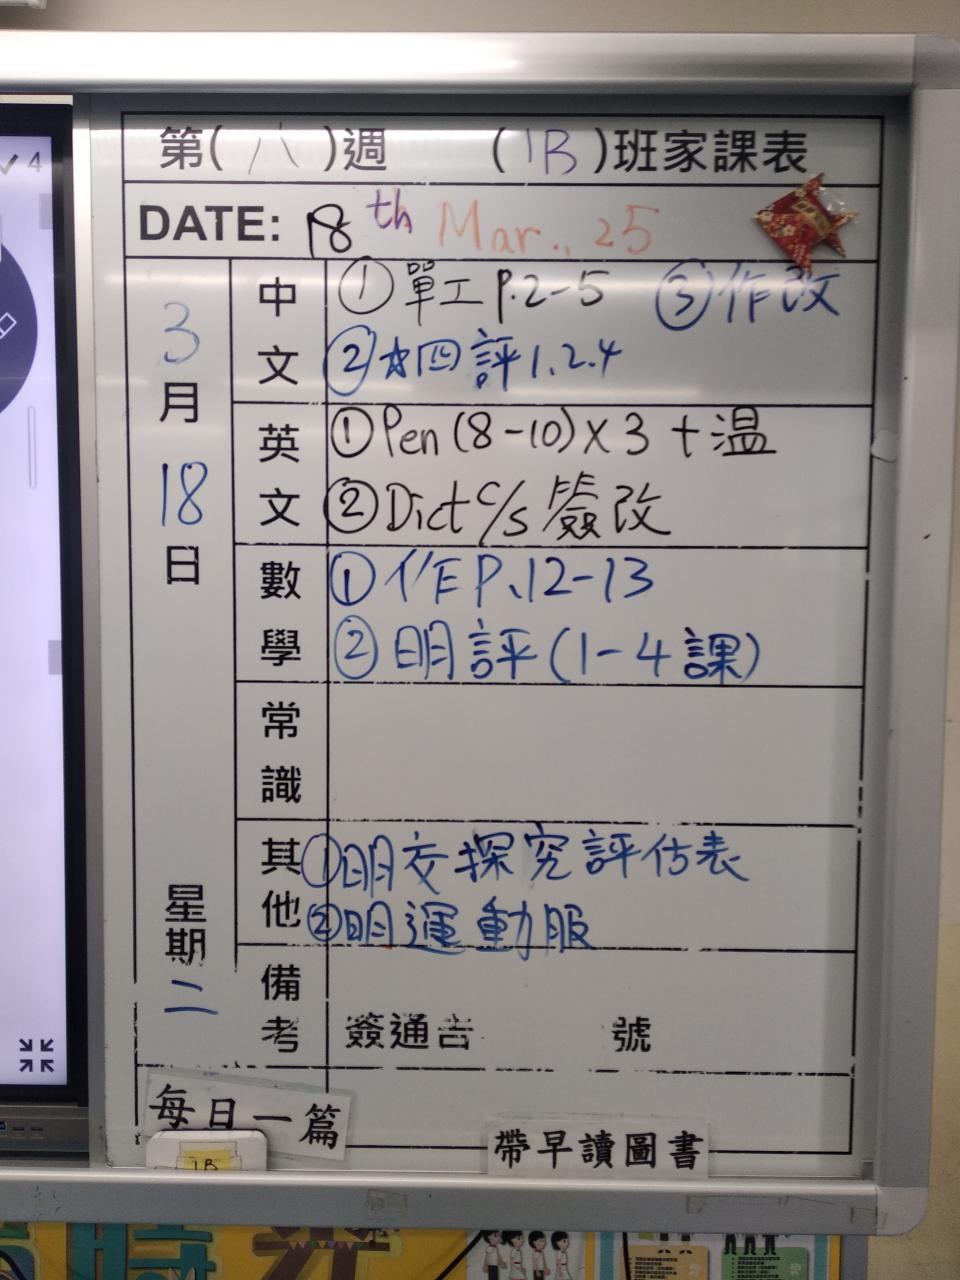 ✓ 4
第(八)週 (1B)班家課表
DATE: 18th Mar., 25
3月18日
星期二
中文
①單工P.2-5 ③作改
②☆四評1.2.4
英文
①Pen(8-10)X3+温
②Dict c/s 簽改
數學
①作P.12-13
②明評(1-4課)
常識
其他
①明交探究評估表
②明運動服
備考
簽通告 號
每日一篇
1B
帶早讀圖書